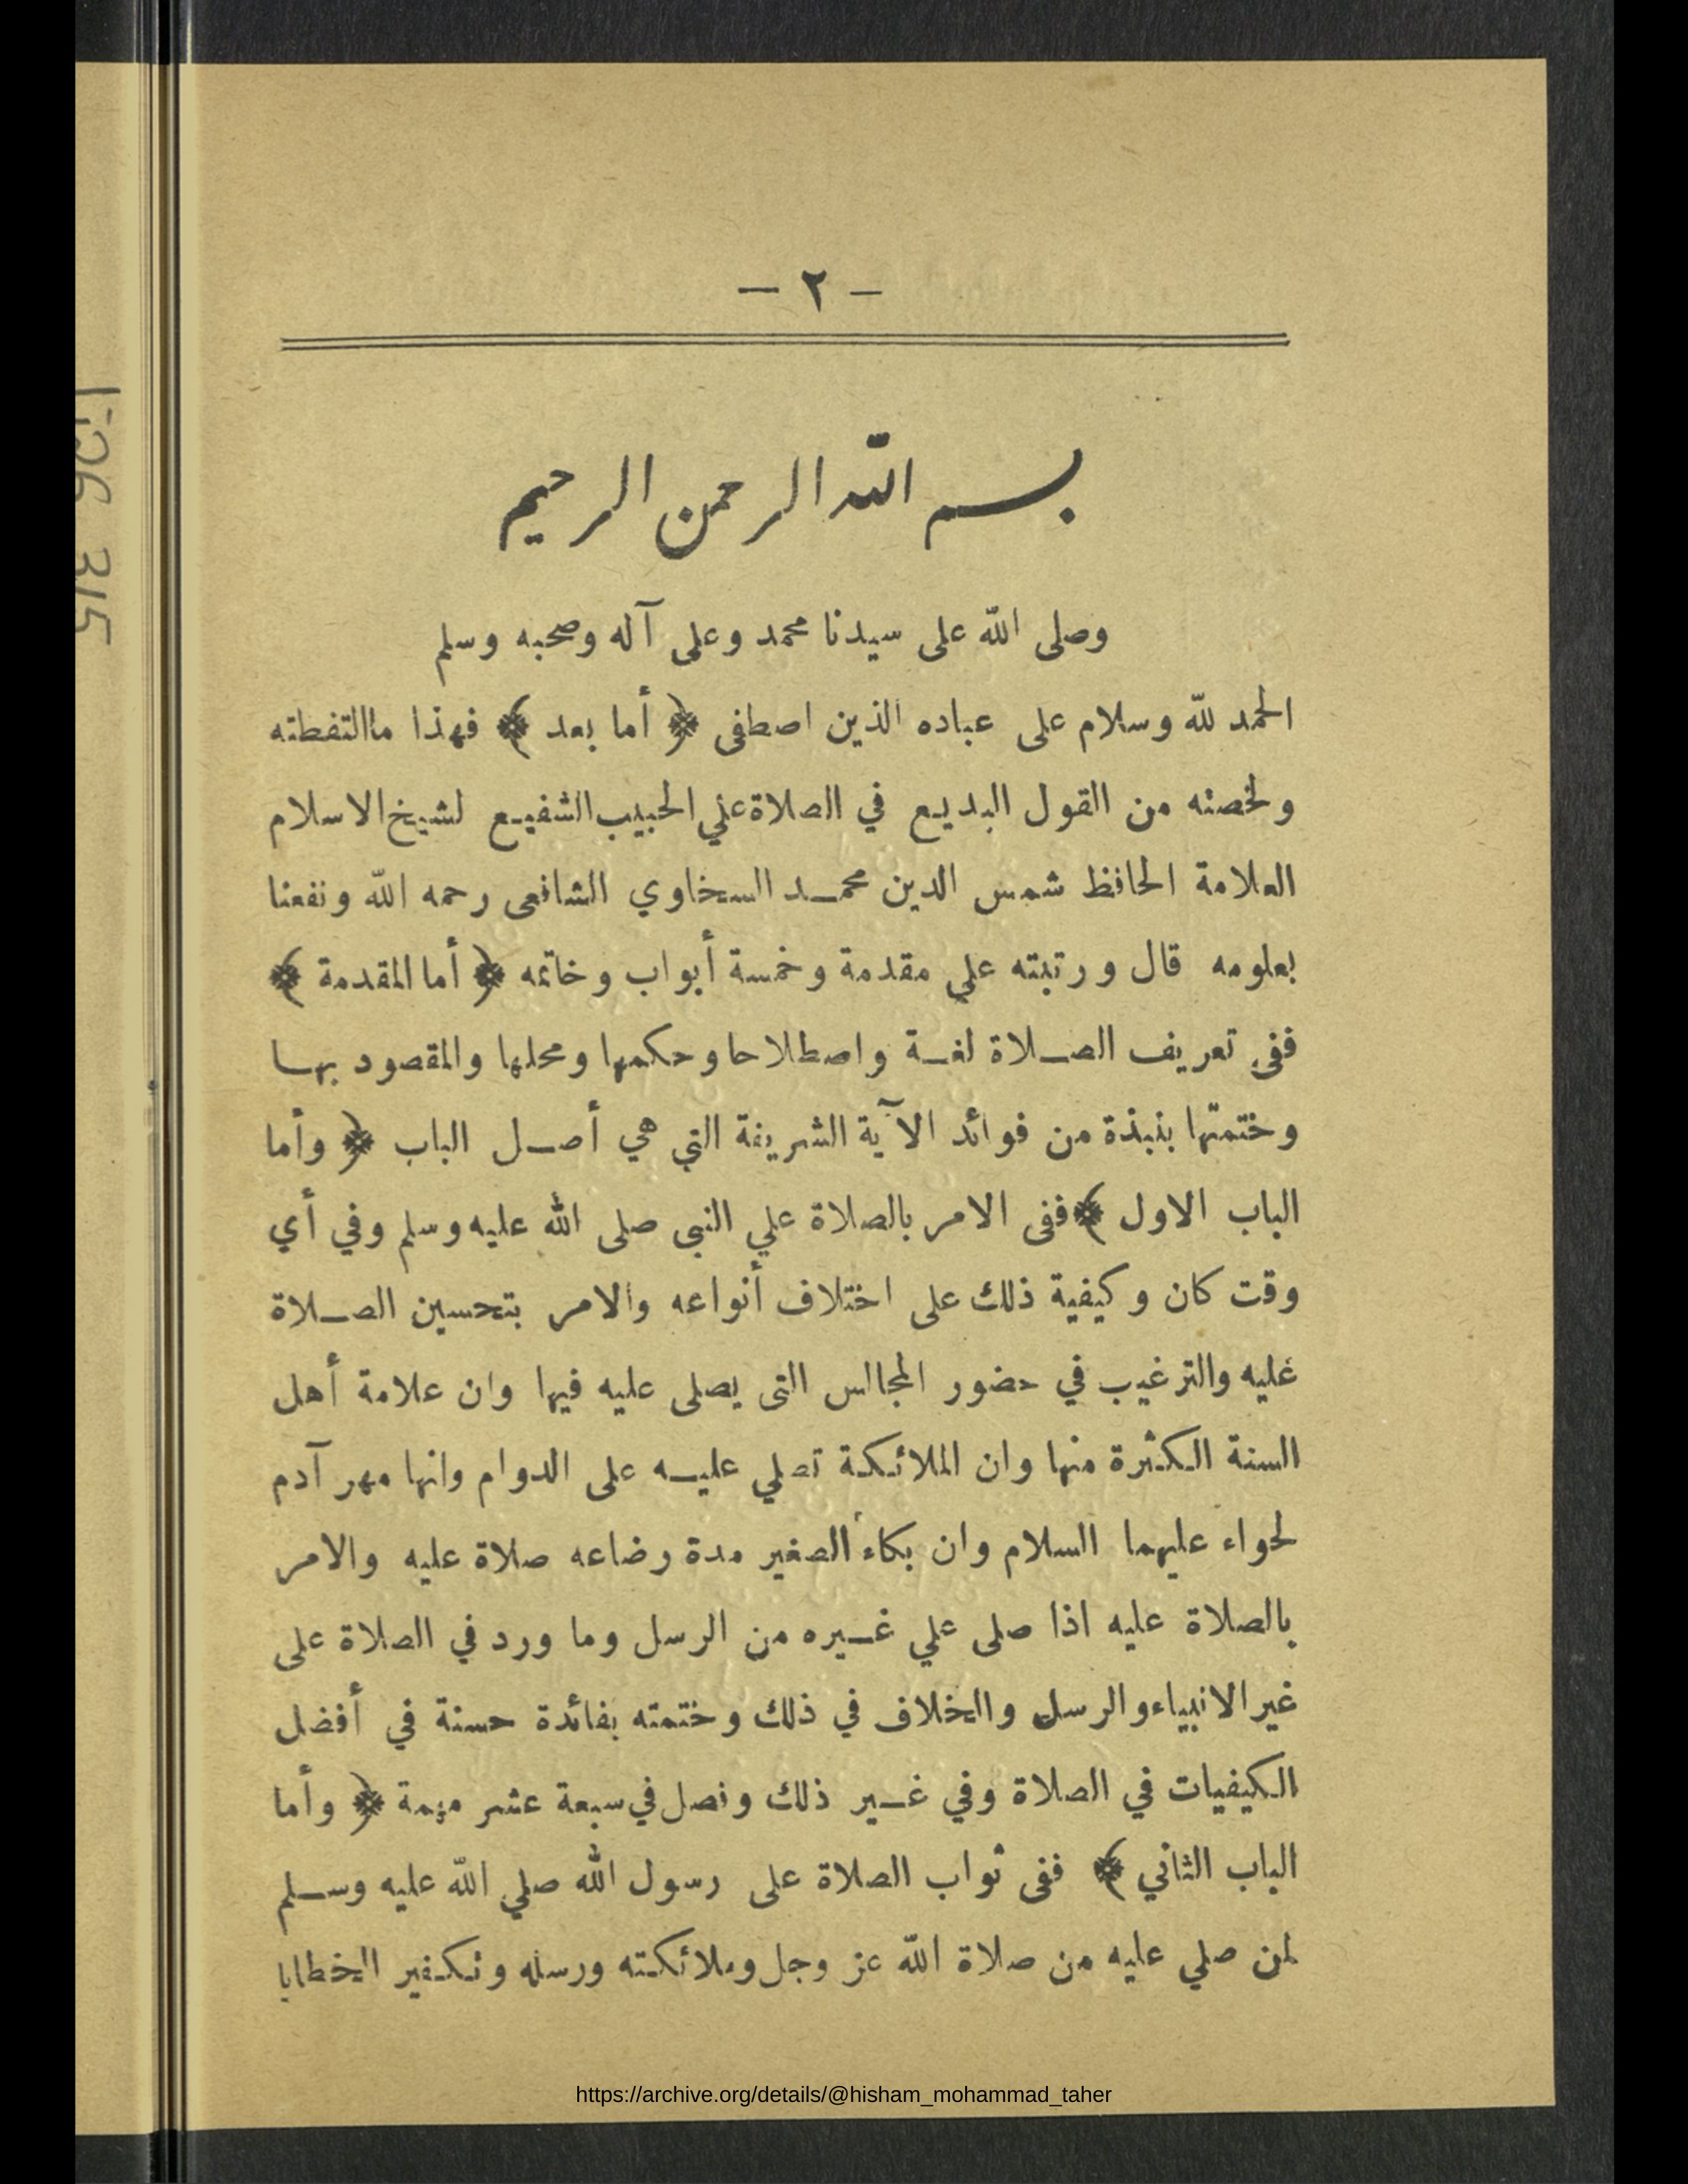 — ٢ —
بسم الله الرحمن الرحيم
وصلى الله على سيدنا محمد وعلى آله وصحبه وسلم
الحمد لله وسلام على عباده الذين اصطفى ﴿ أما بعد ﴾ فهذا ماالتقطته
ولخصته من القول البديع في الصلاة علي الحبيب الشفيع لشيخ الاسلام
العلامة الحافظ شمس الدين محمد السخاوي الشافعى رحمه الله ونفعنا
بعلومه قال ورتبته علي مقدمة وخمسة أبواب وخاتمه ﴿ أما المقدمة ﴾
ففى تعريف الصلاة لغة واصطلاحا وحكمها ومحلها والمقصود بها
وختمتها بنبذة من فوائد الآية الشريفة التي هي أصل الباب ﴿ وأما
الباب الاول ﴾ ففى الامر بالصلاة علي النبى صلى الله عليه وسلم وفي أي
وقت كان وكيفية ذلك على اختلاف أنواعه والامر بتحسين الصلاة
عليه والترغيب في حضور المجالس التى يصلى عليه فيها وان علامة أهل
السنة الكثرة منها وان الملائكة تصلي عليه على الدوام وانها مهر آدم
لحواء عليهما السلام وان بكاء الصغير مدة رضاعه صلاة عليه والامر
بالصلاة عليه اذا صلى علي غيره من الرسل وما ورد في الصلاة على
غير الانبياء والرسل والخلاف في ذلك وختمته بفائدة حسنة في أفضل
الكيفيات في الصلاة وفي غير ذلك ونصل في سبعة عشر مهمة ﴿ وأما
الباب الثاني ﴾ ففى ثواب الصلاة على رسول الله صلي الله عليه وسلم
لمن صلي عليه من صلاة الله عز وجل وملائكته ورسله وتكفير الخطايا
https://archive.org/details/@hisham_mohammad_taher